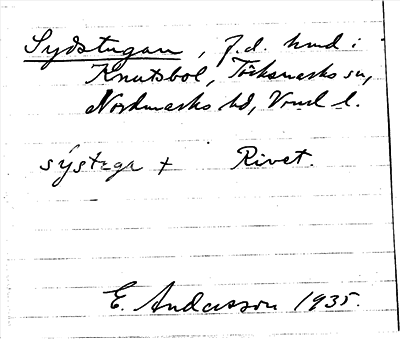 Sydstugan, f.d. hmd i
Knutsbol, Töcksmarks sn,
Nordmarks hd, Vrml l.
systega + Rivet.
E. Andersson 1935.